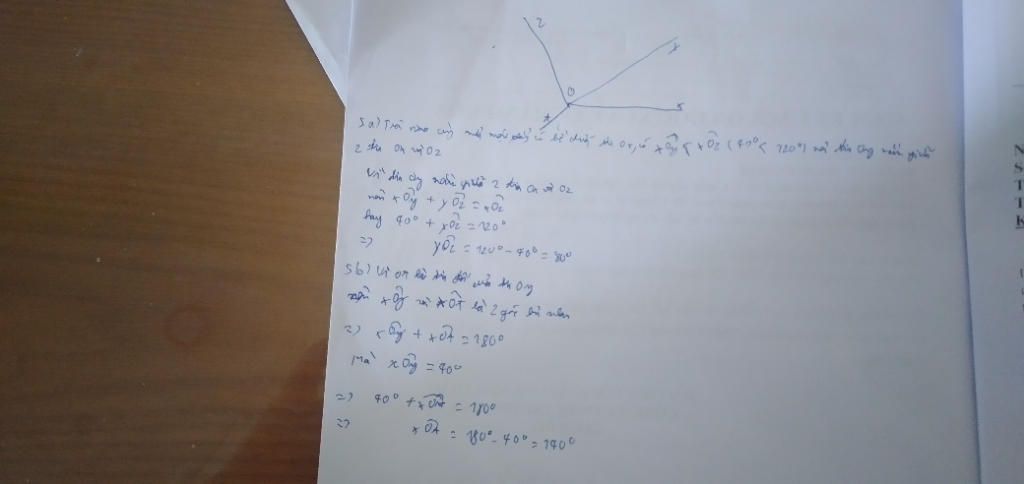 z
y
O
x
t
5a) Trên cùng một nửa mặt phẳng có bờ chứa tia Ox, có xÔy < xÔz (40° < 120°) nên tia Oy nằm giữa
2 tia Ox và Oz
Vì tia Oy nằm giữa 2 tia Ox và Oz
nên xÔy + yÔz = xÔz
hay 40° + yÔz = 120°
=> yÔz = 120° - 40° = 80°
5b) Vì Ot là tia đối của tia Oy
nên xÔy và xÔt là 2 góc kề bù
=> xÔy + xÔt = 180°
mà xÔy = 40°
=> 40° + xÔt = 180°
=> xÔt = 180° - 40° = 140°
N
S
T
T
K